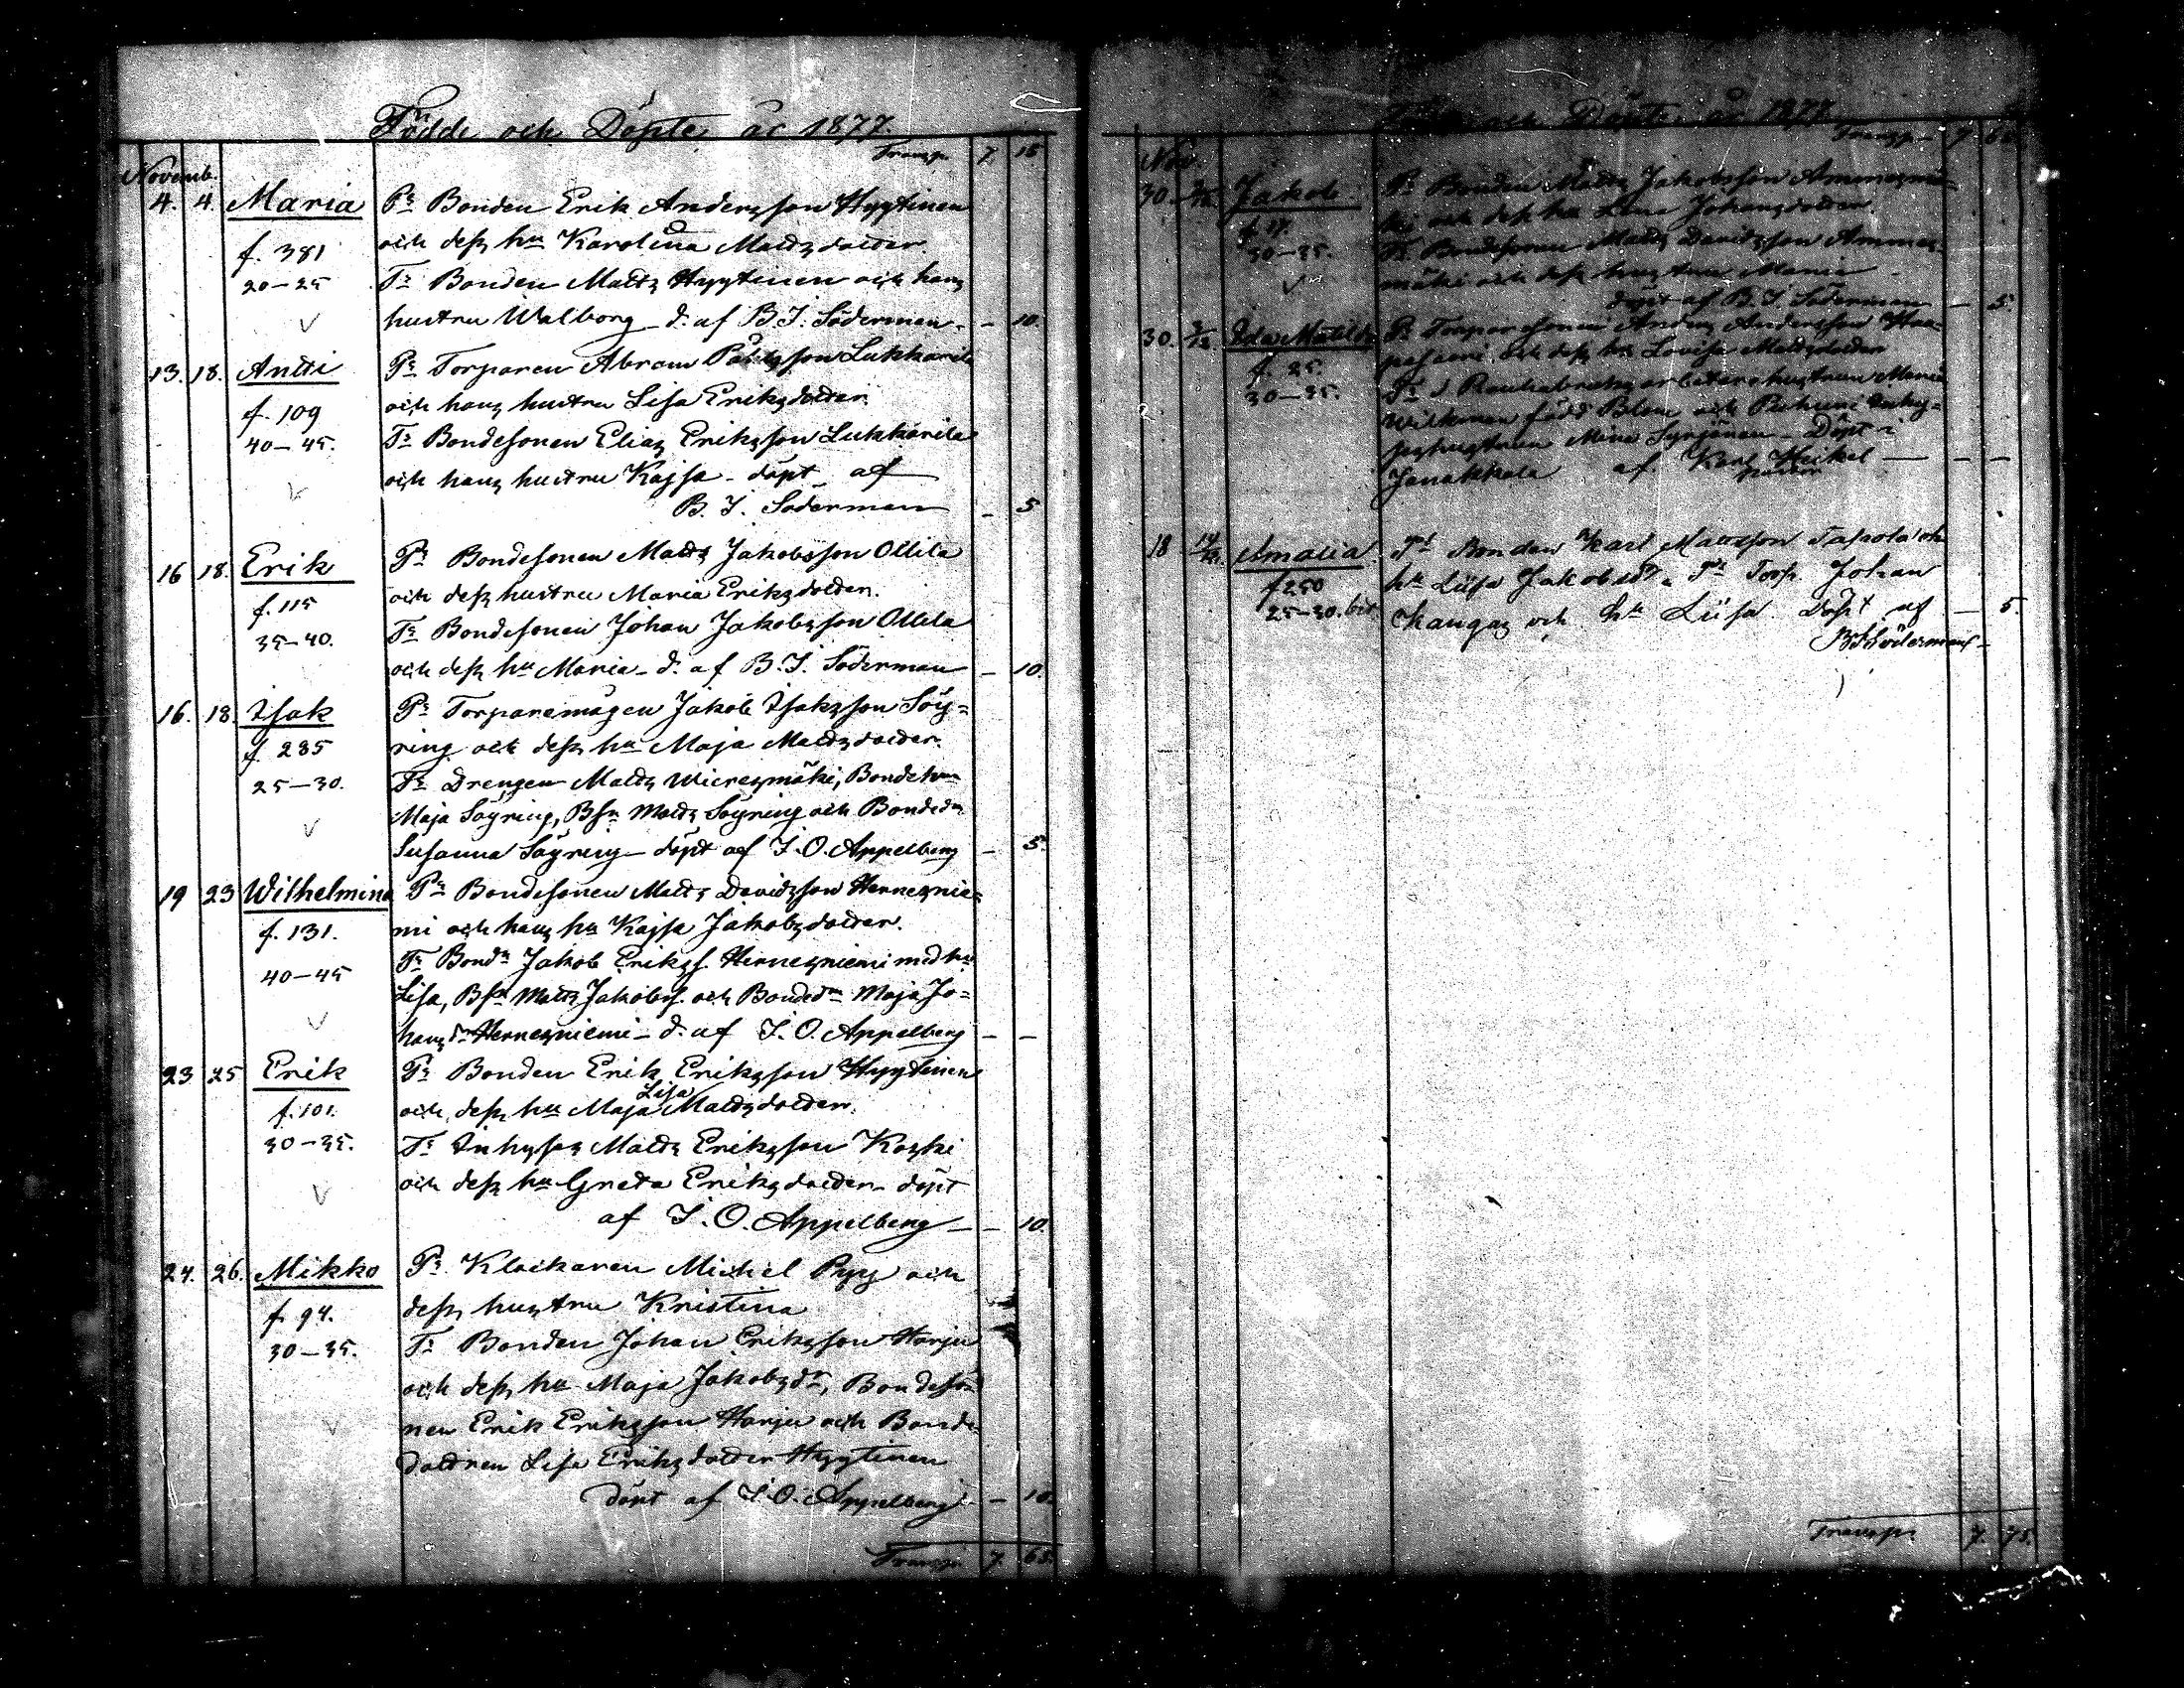 Födde och Döpte år 1877.
Transp. 7 15
Novemb.
4. 4. Maria Pr Bonden Erik Andersson Hyytinen
f. 381 och dess hu Karolina Mattsdotter
20-25 Tr Bonden Matts Hyytinen och hans
hustru Walborg - d. af B.I. Söderman - - 10.
13. 18. Antti Pr Torparen Abram Påhlsson Lukkarila
f. 109 och hans hustru Lisa Eriksdotter.
40-45. Tr Bondesonen Elias Eriksson Lukkarila
och hans hustru Kajsa - döpt af
B. I. Söderman - 5
16 18. Erik Pr Bondesonen Matts Jakobsson Ollila
f. 115 och dess hustru Maria Eriksdotter.
35-40. Tr Bondesonen Johan Jakobsson Ollila
och dess hu Maria - d. af B. I. Söderman - 10.
16. 18. Isak Pr Torparemågen Jakob Isaksson Söy=
f. 285 ring och dess hu Maja Mattsdotter.
25-30. Tr Drengen Matts Wieresmäki, Bondehun
Maja Söyring, Bsn Matts Söyring och Bondedn
Susanna Söyring - döpt af I. O. Appelberg - 5.
19 23 Wilhelmina Pr Bondesonen Matts Davidsson Hernesnie=
f. 131. mi och hans hu Kajsa Jakobsdotter.
40-45 Tr Bondn Jakob Erikss. Hernesniemi med hu
Lisa, Bsn Matts Jakobss. och Bondedn Maja Jo=
hansdr Hernesniemi - d. af I. O. Appelberg - -
23 25 Erik Pr Bonden Erik Eriksson Hyytinen
Lisa
f. 101. och dess hu Maja Mattsdotter.
30-35. Tr Inhyses Matts Eriksson Koski
och dess hu Greta Eriksdotter - döpt
af I. O. Appelberg - - 10.
24. 26. Mikko Pr Klockaren Michel Pyy och
f. 94. dess hustru Kristina
30-35. Tr Bonden Johan Eriksson Harju
och dess hu Maja Jakobsdr, Bondeso=
nen Erik Eriksson Harju och Bonde=
dottren Lisa Eriksdotter Hyytinen
döpt af I. O. Appelberg - 10.
Transp. 7. 65.
och Döpte år 1877
Transp. 7. 65
Nov.
30. 2/12. Jakob Pr Bonden Matts Jakobsson Ammesmä=
f. 17. ki och dess hu Lena Johansdotter.
30-35. Tr Bondesonen Matts Davidsson Ammes=
mäki och dess hustru Maria
döpt af B. I. Söderman - 5.
30. Ida Matilda Pr Torparesonen Anders Andersson Haa=
f. 25. och dess hu Lovisa Mattsdotter
30-35. Maria
Wilkman född Blom och
Mina Syrjänen - Döpt i
Janakkala af Karl Heikel - - -
18 Amalia Pr Bonden Karl Mattsson Tapola och
f 250 hu Liisa Jakobsdr. Tr Torp. Johan
25-30. Kangas och hu Liisa. Döpt af - 5.
B I Söderman -
Transp. 7. 75.